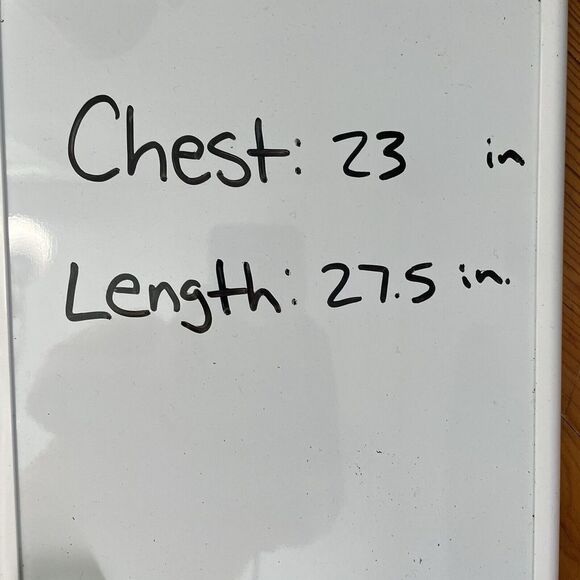 Chest: 23 in
Length: 27.5 in.